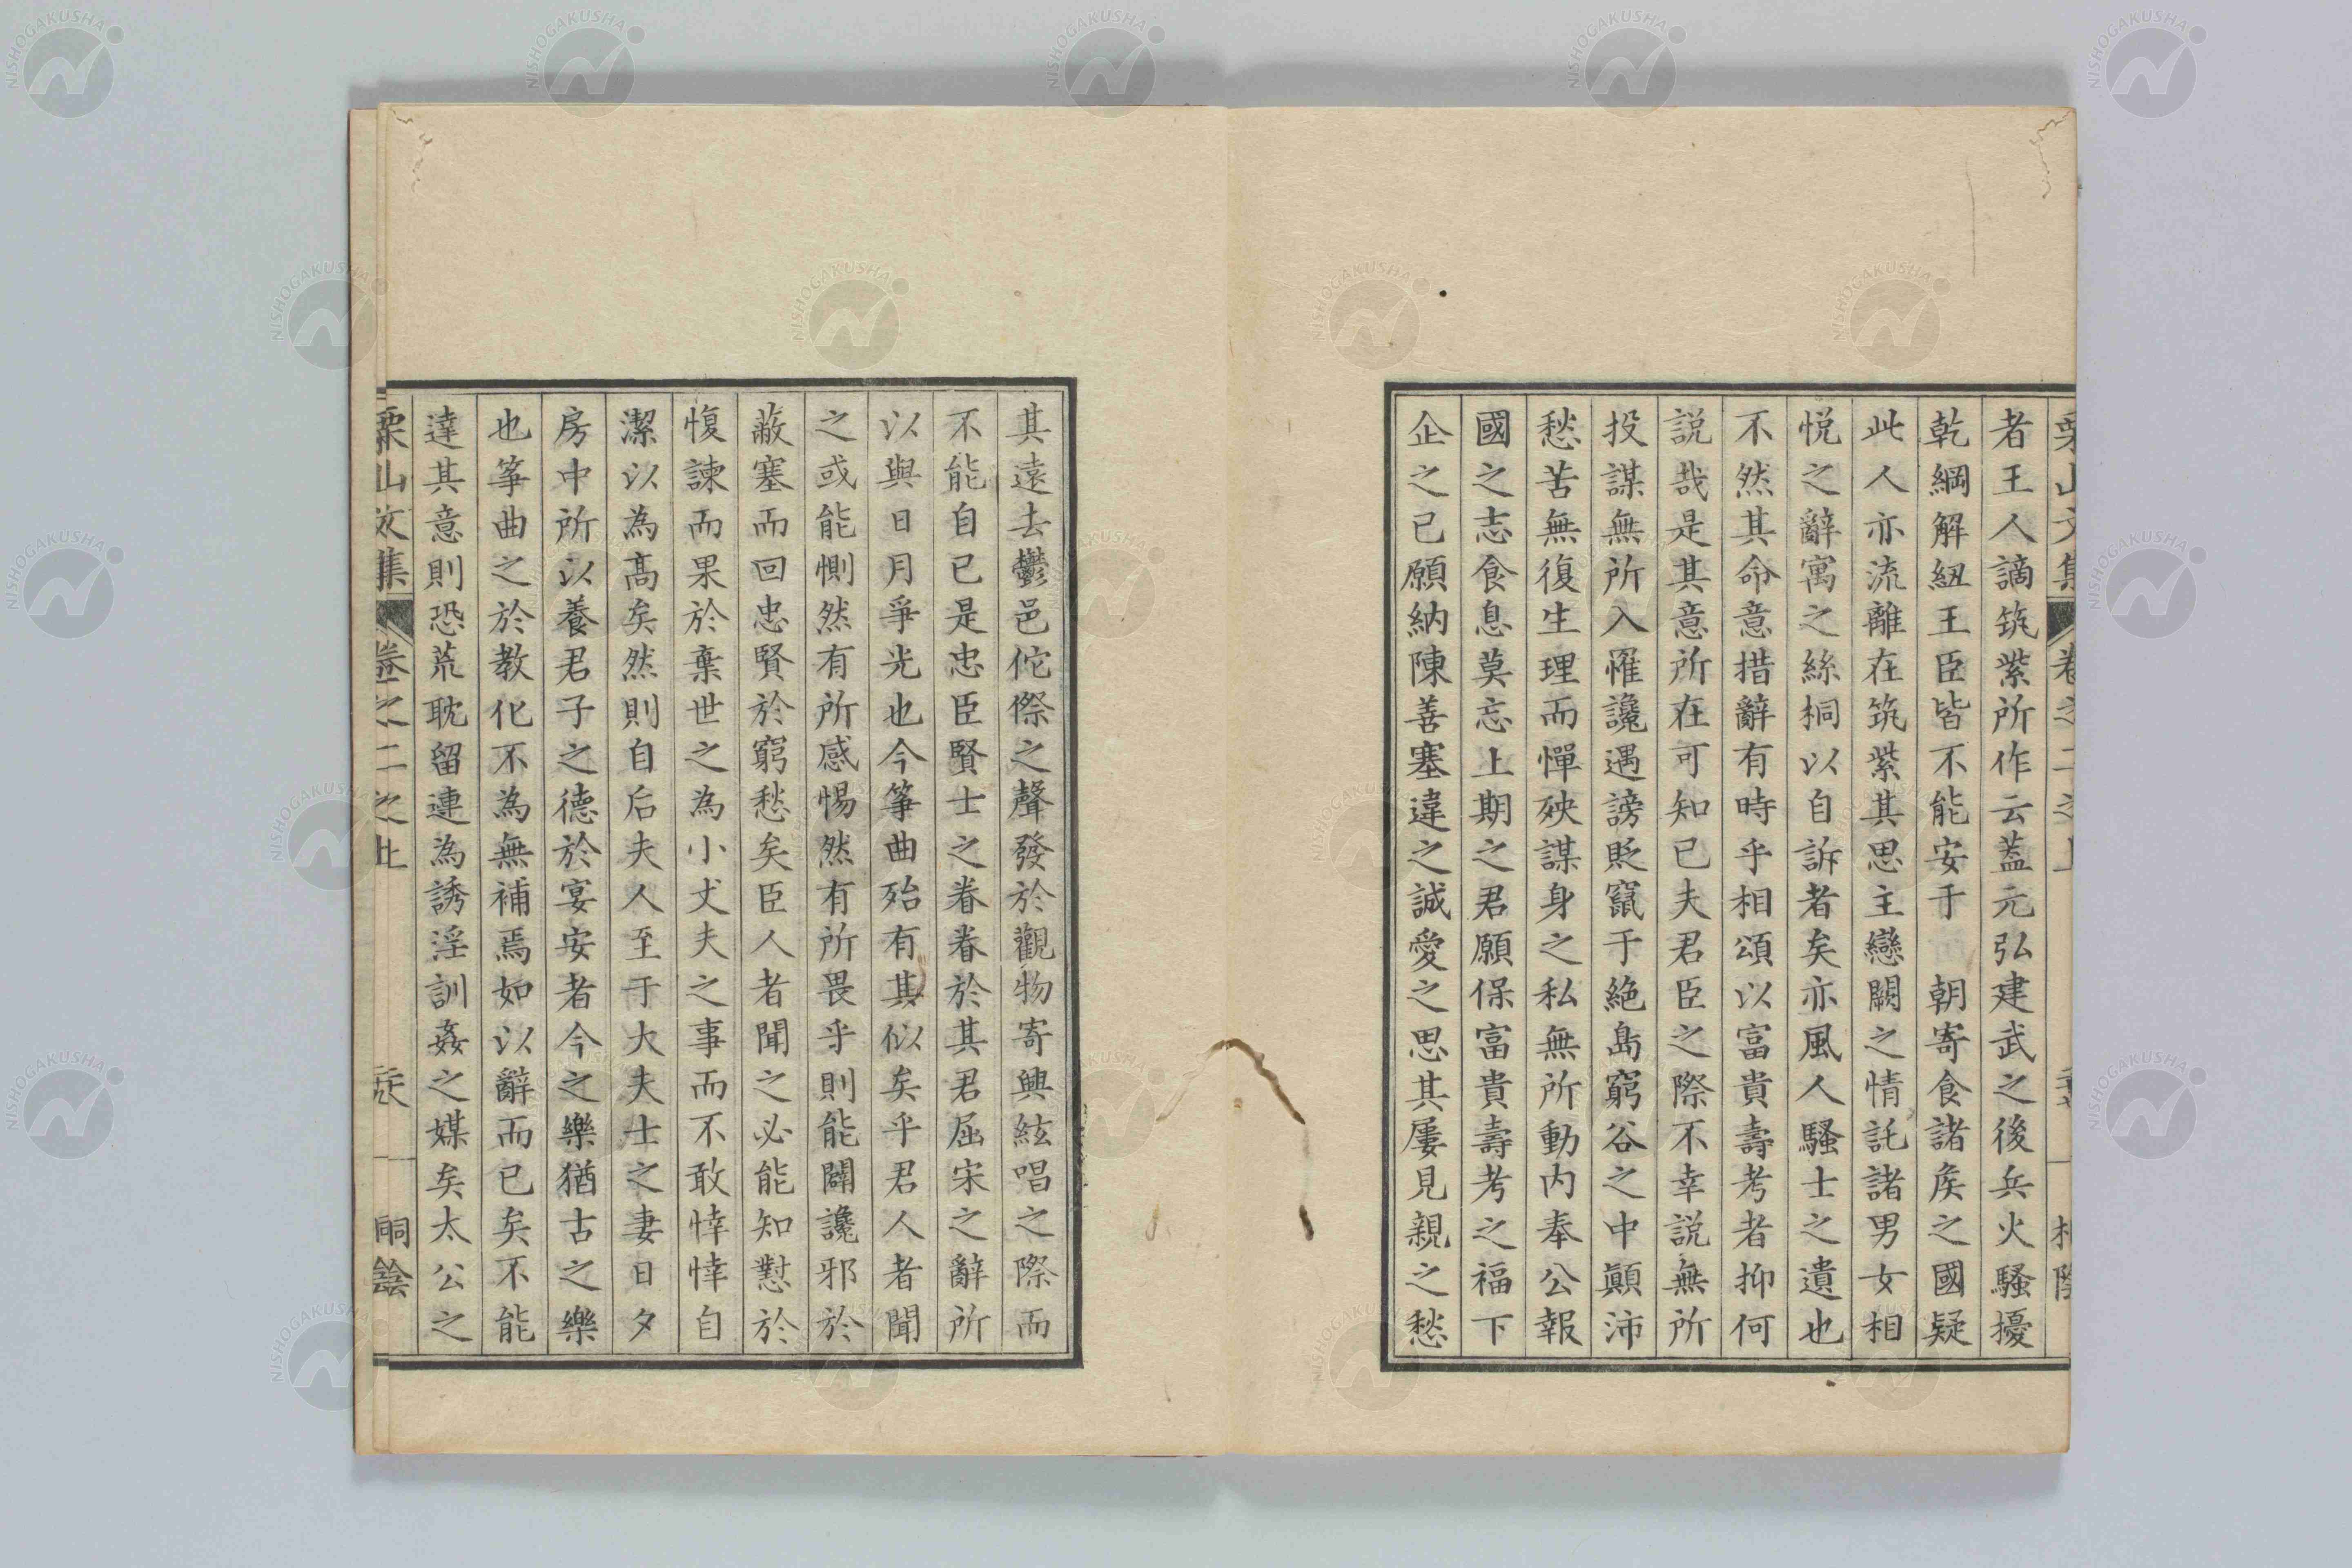 者王人謫筑紫所作云蓋元弘建武之後兵火騷擾
乾綱解紐王臣皆不能安于　朝寄食諸矦之國疑
此人亦流離在筑紫其思主戀闕之情託諸男女相
悦之辭寓之絲桐以自訴者矣亦風人騷士之遺也
不然其命意措辭有時乎相頌以富貴壽考者抑何
説哉是其意所在可知已夫君臣之際不幸説無所
投謀無所入罹讒遇謗貶竄于絶島窮谷之中顚沛
愁苦無復生理而憚殃謀身之私無所動内奉公報
國之志食息莫忘上期之君願保富貴壽考之福下
企之已願納陳善塞違之誠愛之思其屢見親之愁
其遠去鬱邑侘傺之聲發於觀物寄興絃唱之際而
不能自已是忠臣賢士之眷眷於其君屈宋之辭所
以與日月爭光也今箏曲殆有其似矣乎君人者聞
之或能惻然有所感惕然有所畏乎則能闢讒邪於
蔽塞而回忠賢於窮愁矣臣人者聞之必能知懟於
愎諫而果於棄世之為小丈夫之事而不敢悻悻自
潔以為高矣然則自后夫人至于大夫士之妻日夕
房中所以養君子之德於宴安者今之樂猶古之樂
也箏曲之於教化不為無補焉如以辭而已矣不能
達其意則恐荒耽留連為誘淫訓姦之媒矣太公之
栗山文集 卷之二之上